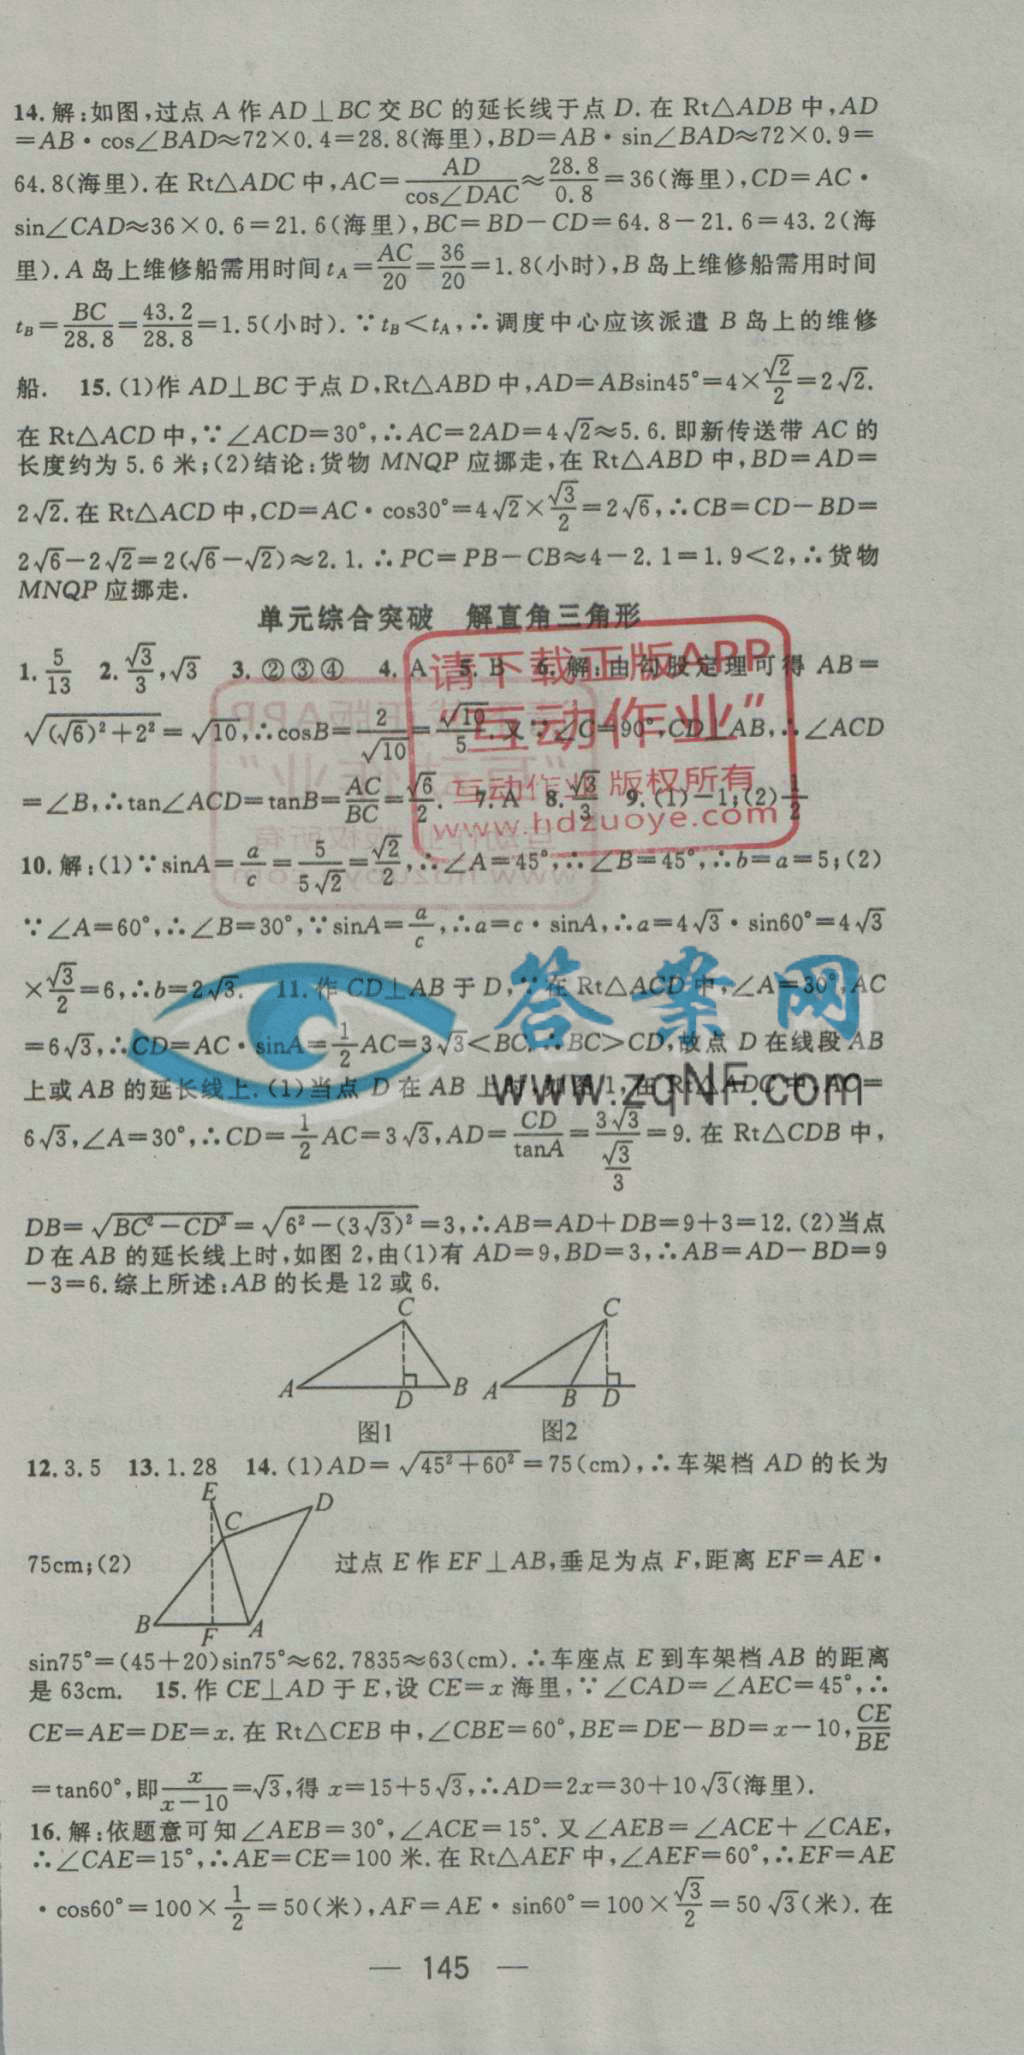 14.解:如图,过点 A 作 AD⊥BC 交 BC 的延长线于点 D. 在 Rt△ADB 中,AD
=AB·cos∠BAD≈72×0.4=28.8(海里),BD=AB·sin∠BAD≈72×0.9=
64.8(海里).在 Rt△ADC 中,AC=AD/cos∠DAC≈28.8/0.8=36(海里),CD=AC·
sin∠CAD≈36×0.6=21.6(海里),BC=BD-CD=64.8-21.6=43.2(海
里).A 岛上维修船需用时间 tA=AC/20=36/20=1.8(小时),B 岛上维修船需用时间
tB=BC/28.8=43.2/28.8=1.5(小时).∵tB<tA,∴调度中心应该派遣 B 岛上的维修
船. 15.(1)作 AD⊥BC 于点 D,Rt△ABD 中,AD=ABsin45°=4×√2/2=2√2.
在 Rt△ACD 中,∵∠ACD=30°,∴AC=2AD=4√2≈5.6.即新传送带 AC 的
长度约为 5.6 米;(2)结论:货物 MNQP 应挪走,在 Rt△ABD 中,BD=AD=
2√2.在 Rt△ACD 中,CD=AC·cos30°=4√2×√3/2=2√6,∴CB=CD-BD=
2√6-2√2=2(√6-√2)≈2.1.∴PC=PB-CB≈4-2.1=1.9<2,∴货物
MNQP 应挪走.
单元综合突破 解直角三角形
1. 5/13 2. √3/3,√3 3. ②③④ 4. A 5. B 6. 解:由勾股定理可得 AB=
√((√6)²+2²)=√10,∴cosB=2/√10=√10/5.又∵∠C=90°,CD⊥AB,∴∠ACD
=∠B,∴tan∠ACD=tanB=AC/BC=√6/2. 7. A 8. √3/3 9.(1)-1;(2)1/2
10.解:(1)∵sinA=a/c=5/5√2=√2/2,∴∠A=45°,∴∠B=45°,∴b=a=5;(2)
∵∠A=60°,∴∠B=30°,∵sinA=a/c,∴a=c·sinA,∴a=4√3·sin60°=4√3
×√3/2=6,∴b=2√3. 11.作 CD⊥AB 于 D,∵在 Rt△ACD 中,∠A=30°,AC
=6√3,∴CD=AC·sinA=1/2AC=3√3<BC.∴BC>CD,故点 D 在线段 AB
上或 AB 的延长线上.(1)当点 D 在 AB 上时,如图 1,在 Rt△ADC 中,AC=
6√3,∠A=30°,∴CD=1/2AC=3√3,AD=CD/tanA=3√3/(√3/3)=9.在 Rt△CDB 中,
DB=√(BC²-CD²)=√(6²-(3√3)²)=3,∴AB=AD+DB=9+3=12.(2)当点
D 在 AB 的延长线上时,如图 2,由(1)有 AD=9,BD=3,∴AB=AD-BD=9
-3=6.综上所述:AB 的长是 12 或 6.
C C
A D B A B D
图1 图2
12.3.5 13.1.28 14.(1)AD=√(45²+60²)=75(cm),∴车架档 AD 的长为
E C D
75cm;(2) 过点 E 作 EF⊥AB,垂足为点 F,距离 EF=AE·
B F A
sin75°=(45+20)sin75°≈62.7835≈63(cm).∴车座点 E 到车架档 AB 的距离
是 63cm. 15.作 CE⊥AD 于 E,设 CE=x 海里,∵∠CAD=∠AEC=45°,∴
CE=AE=DE=x.在 Rt△CEB 中,∠CBE=60°,BE=DE-BD=x-10,CE/BE
=tan60°,即x/(x-10)=√3,得 x=15+5√3,∴AD=2x=30+10√3(海里).
16.解:依题意可知∠AEB=30°,∠ACE=15°.又∠AEB=∠ACE+∠CAE,
∴∠CAE=15°,∴AE=CE=100 米.在 Rt△AEF 中,∠AEF=60°,∴EF=AE
·cos60°=100×1/2=50(米),AF=AE·sin60°=100×√3/2=50√3(米).在
— 145 —
请下载正版APP
"互动作业"
互动作业 版权所有
www.hdzuoye.com
答案网
www.zqNF.com